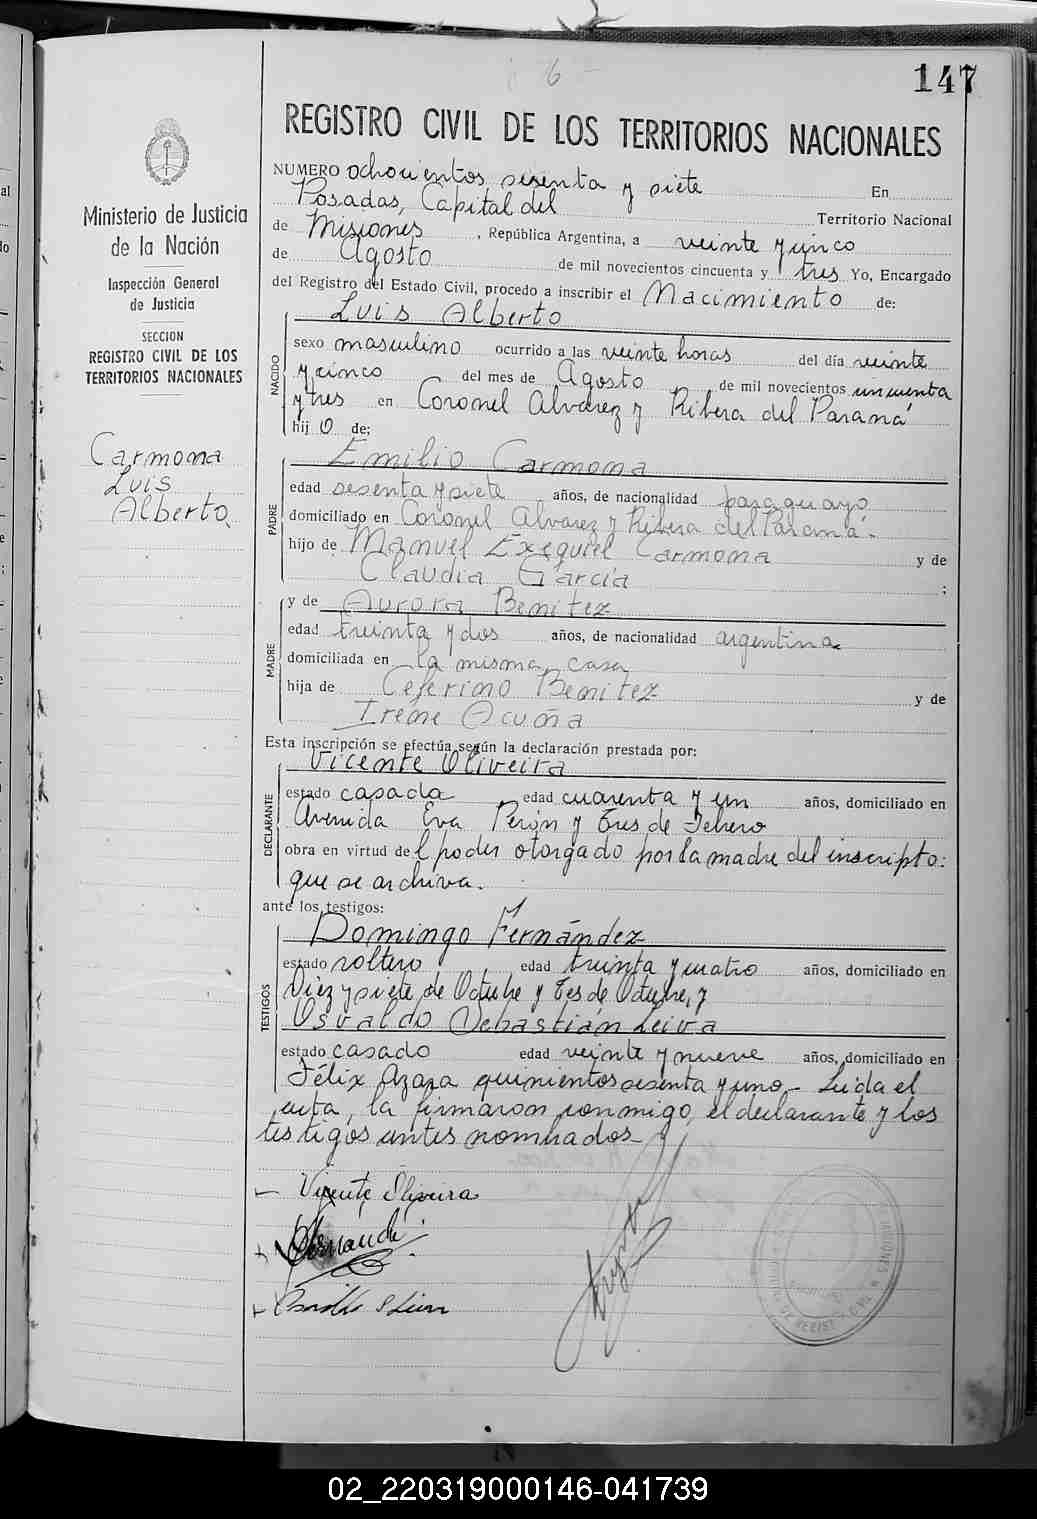 147
6
REGISTRO CIVIL DE LOS TERRITORIOS NACIONALES
Ministerio de Justicia
de la Nación
Inspección General
de Justicia
SECCION
REGISTRO CIVIL DE LOS
TERRITORIOS NACIONALES
Carmona
Luis
Alberto.
NUMERO ochocientos sesenta y siete En
Posadas, Capital del Territorio Nacional
de Misiones, República Argentina, a veinte y cinco
de Agosto de mil novecientos cincuenta y tres Yo, Encargado
del Registro del Estado Civil, procedo a inscribir el Nacimiento de:
Luis Alberto
NACIDO
sexo masculino ocurrido a las veinte horas del día veinte
y cinco del mes de Agosto de mil novecientos cincuenta
y tres en Coronel Alvarez y Ribera del Paraná
hijo de:
Emilio Carmona
PADRE
edad sesenta y siete años, de nacionalidad paraguayo
domiciliado en Coronel Alvarez y Ribera del Paraná.
hijo de Manuel Exequiel Carmona y de
Claudia García ;
y de Aurora Benitez
MADRE
edad treinta y dos años, de nacionalidad argentina
domiciliada en la misma casa
hija de Ceferino Benitez y de
Irene Acuña
Esta inscripción se efectúa según la declaración prestada por:
Vicente Oliveira
DECLARANTE
estado casado edad cuarenta y un años, domiciliado en
Avenida Eva Perón y Tres de Febrero
obra en virtud del poder otorgado por la madre del inscripto:
que se archiva.
ante los testigos:
Domingo Fernández
TESTIGOS
estado soltero edad treinta y cuatro años, domiciliado en
Diez y siete de Octubre y Tres de Octubre, y
Osvaldo Sebastián Leiva
estado casado edad veinte y nueve años, domiciliado en
Félix Azara quinientos sesenta y uno.- Leída el
acta, la firmaron conmigo, el declarante y los
testigos antes nombrados
Vicente Oliveira
Fernández
02_220319000146-041739